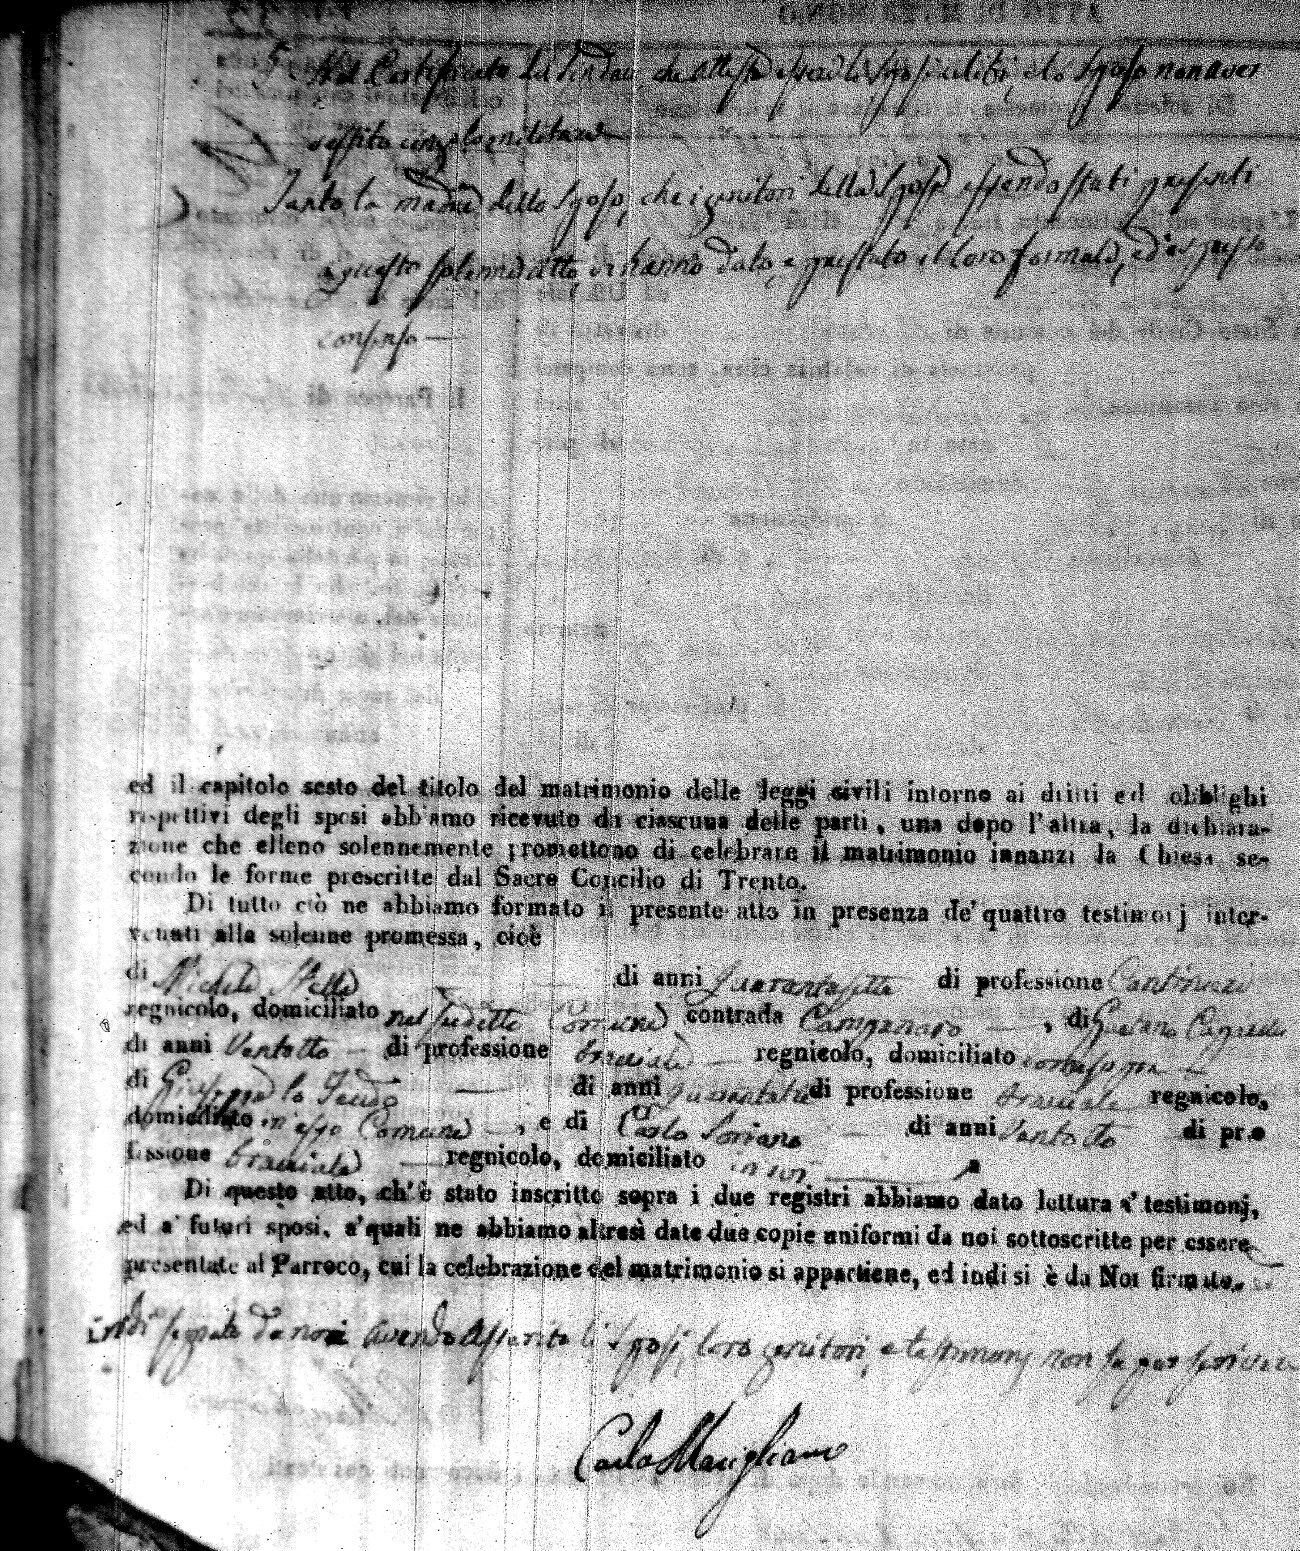 5. Nel Certificato del Sindaco che attesta essere li Sposi celibi, e lo Sposo non aver
vestito cingolo militare
Tanto la madre dello Sposo, che i genitori della Sposa essendo stati presenti
a questo solenne atto, vi hanno dato, e prestato il loro formale, ed espresso
consenso —
ed il capitolo sesto del titolo del matrimonio delle leggi civili intorno ai dritti ed obblighi
rispettivi degli sposi abbiamo ricevuto da ciascuna delle parti, una dopo l'altra, la dichiara-
zione che elleno solennemente promettono di celebrare il matrimonio innanzi la Chiesa se-
condo le forme prescritte dal Sacro Concilio di Trento.
Di tutto ciò ne abbiamo formato il presente atto in presenza de' quattro testimonj inter-
venuti alla solenne promessa, cioè
di Michele di anni quarantasette di professione
regnicolo, domiciliato nel sudetto Comune contrada Campanaro —, di Gaetano
di anni Ventotto — di professione bracciale — regnicolo, domiciliato come sopra —
di Giuseppe lo — di anni di professione bracciale regnicolo,
domiciliato in esso Comune —, e di Carlo Soriano — di anni Ventotto di pro
fessione bracciale — regnicolo, domiciliato ivi
Di questo atto, ch'è stato inscritto sopra i due registri abbiamo dato lettura a' testimonj,
ed a' futuri sposi, a' quali ne abbiamo altresì date due copie uniformi da noi sottoscritte per essere
presentate al Parroco, cui la celebrazione del matrimonio si appartiene, ed indi si è da Noi firmato.
indi segnato da noi avendo asserito li Sposi, loro genitori, e testimonj non saper scrivere
Carlo Marigliano